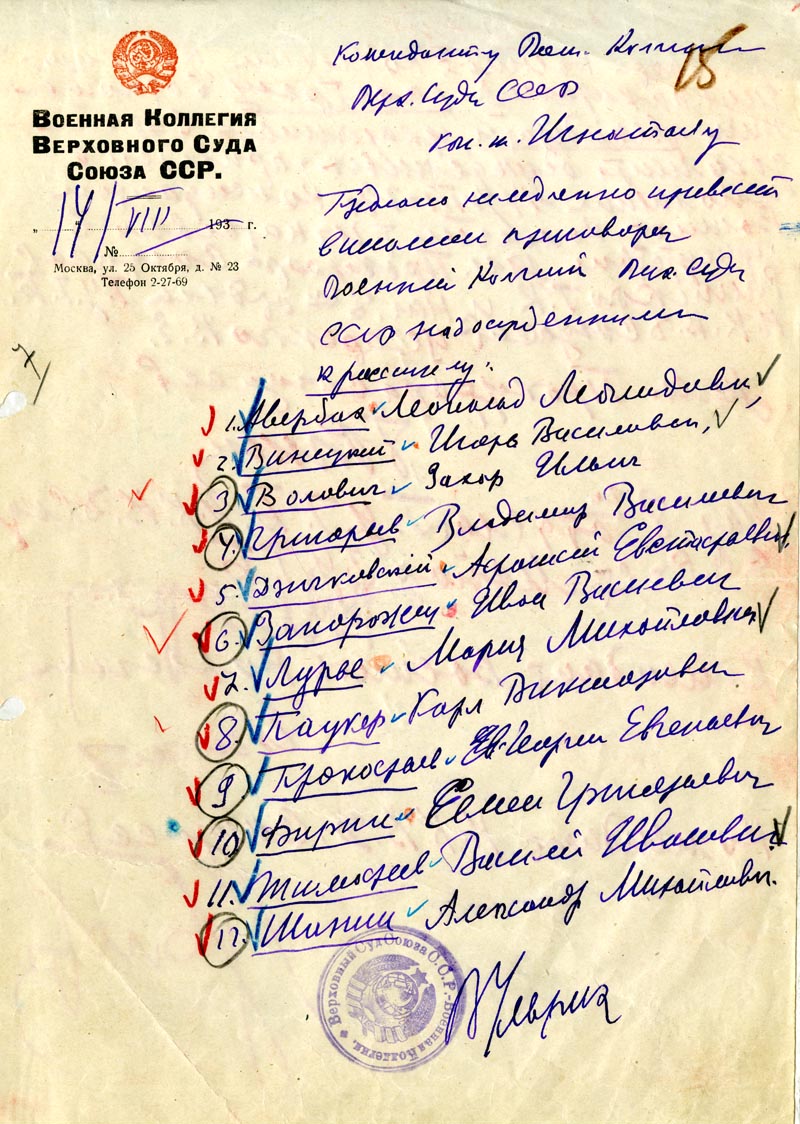 Военная Коллегия
Верховного Суда
Союза ССР.
„14" VIII 193 г.
№
Москва, ул. 25 Октября, д. № 23
Телефон 2-27-69
15
Коменданту Воен. Коллегии
Верх. Суда СССР
кап. т. Игнатьеву
Предлагаю немедленно привести
в исполнение приговора
Военной Коллегии Верх. Суда
СССР над осужденными
к расстрелу:
1. Авербах Леопольд Леонидович
2. Винецкий Игорь Васильевич,
3. Волович Захар Ильич
4. Григорьев Владимир Васильевич
5. Дзичковский Афанасий Евстафьевич
6. Запорожец Иван Васильевич
7. Лурье Мария Михайловна
8. Паукер Карл Викторович
9. Прокофьев Георгий Евгеньевич
10. Фирин Семен Григорьевич
11. Тимофеев Василий Иванович
12. Шанин Александр Михайлович.
Верховный Суд Союза С.С.Р. - Военная Коллегия.
В Ульрих